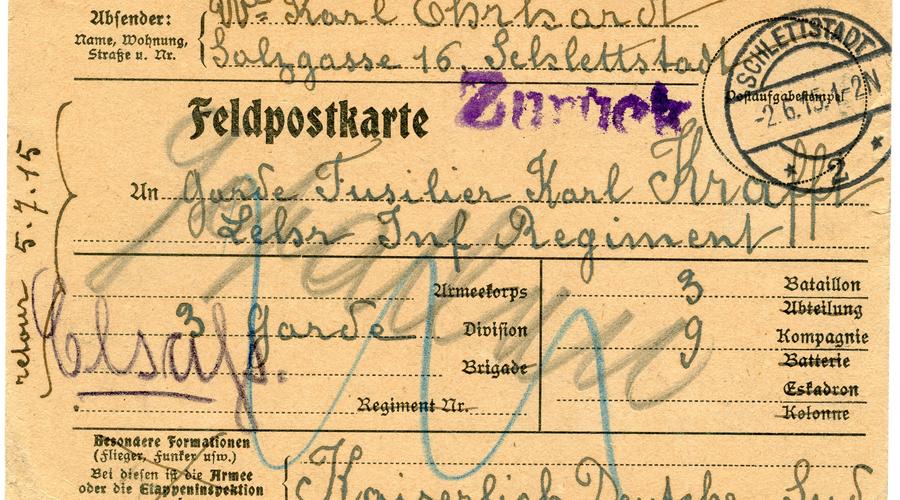 Absender:
Name, Wohnung,
Straße u. Nr.
Wwe Karl Ehrhardt
Salzgasse 16. Schlettstadt
SCHLETTSTADT
Postaufgabestempel
-2.6.15.1-2N
* 2 *
Feldpostkarte
Zurück
retour 5.7.15
An Garde Fusilier Karl Krafft
Lehr Inf Regiment
Armeekorps
3 Garde Division
Brigade
Regiment Nr.
3 Bataillon
Abteilung
9 Kompagnie
Batterie
Eskadron
Kolonne
Elsaß.
Besondere Formationen
(Flieger, Funker usw.)
Bei diesen ist die Armee
oder die Etappeninspektion
Kaiserlich Deutsche